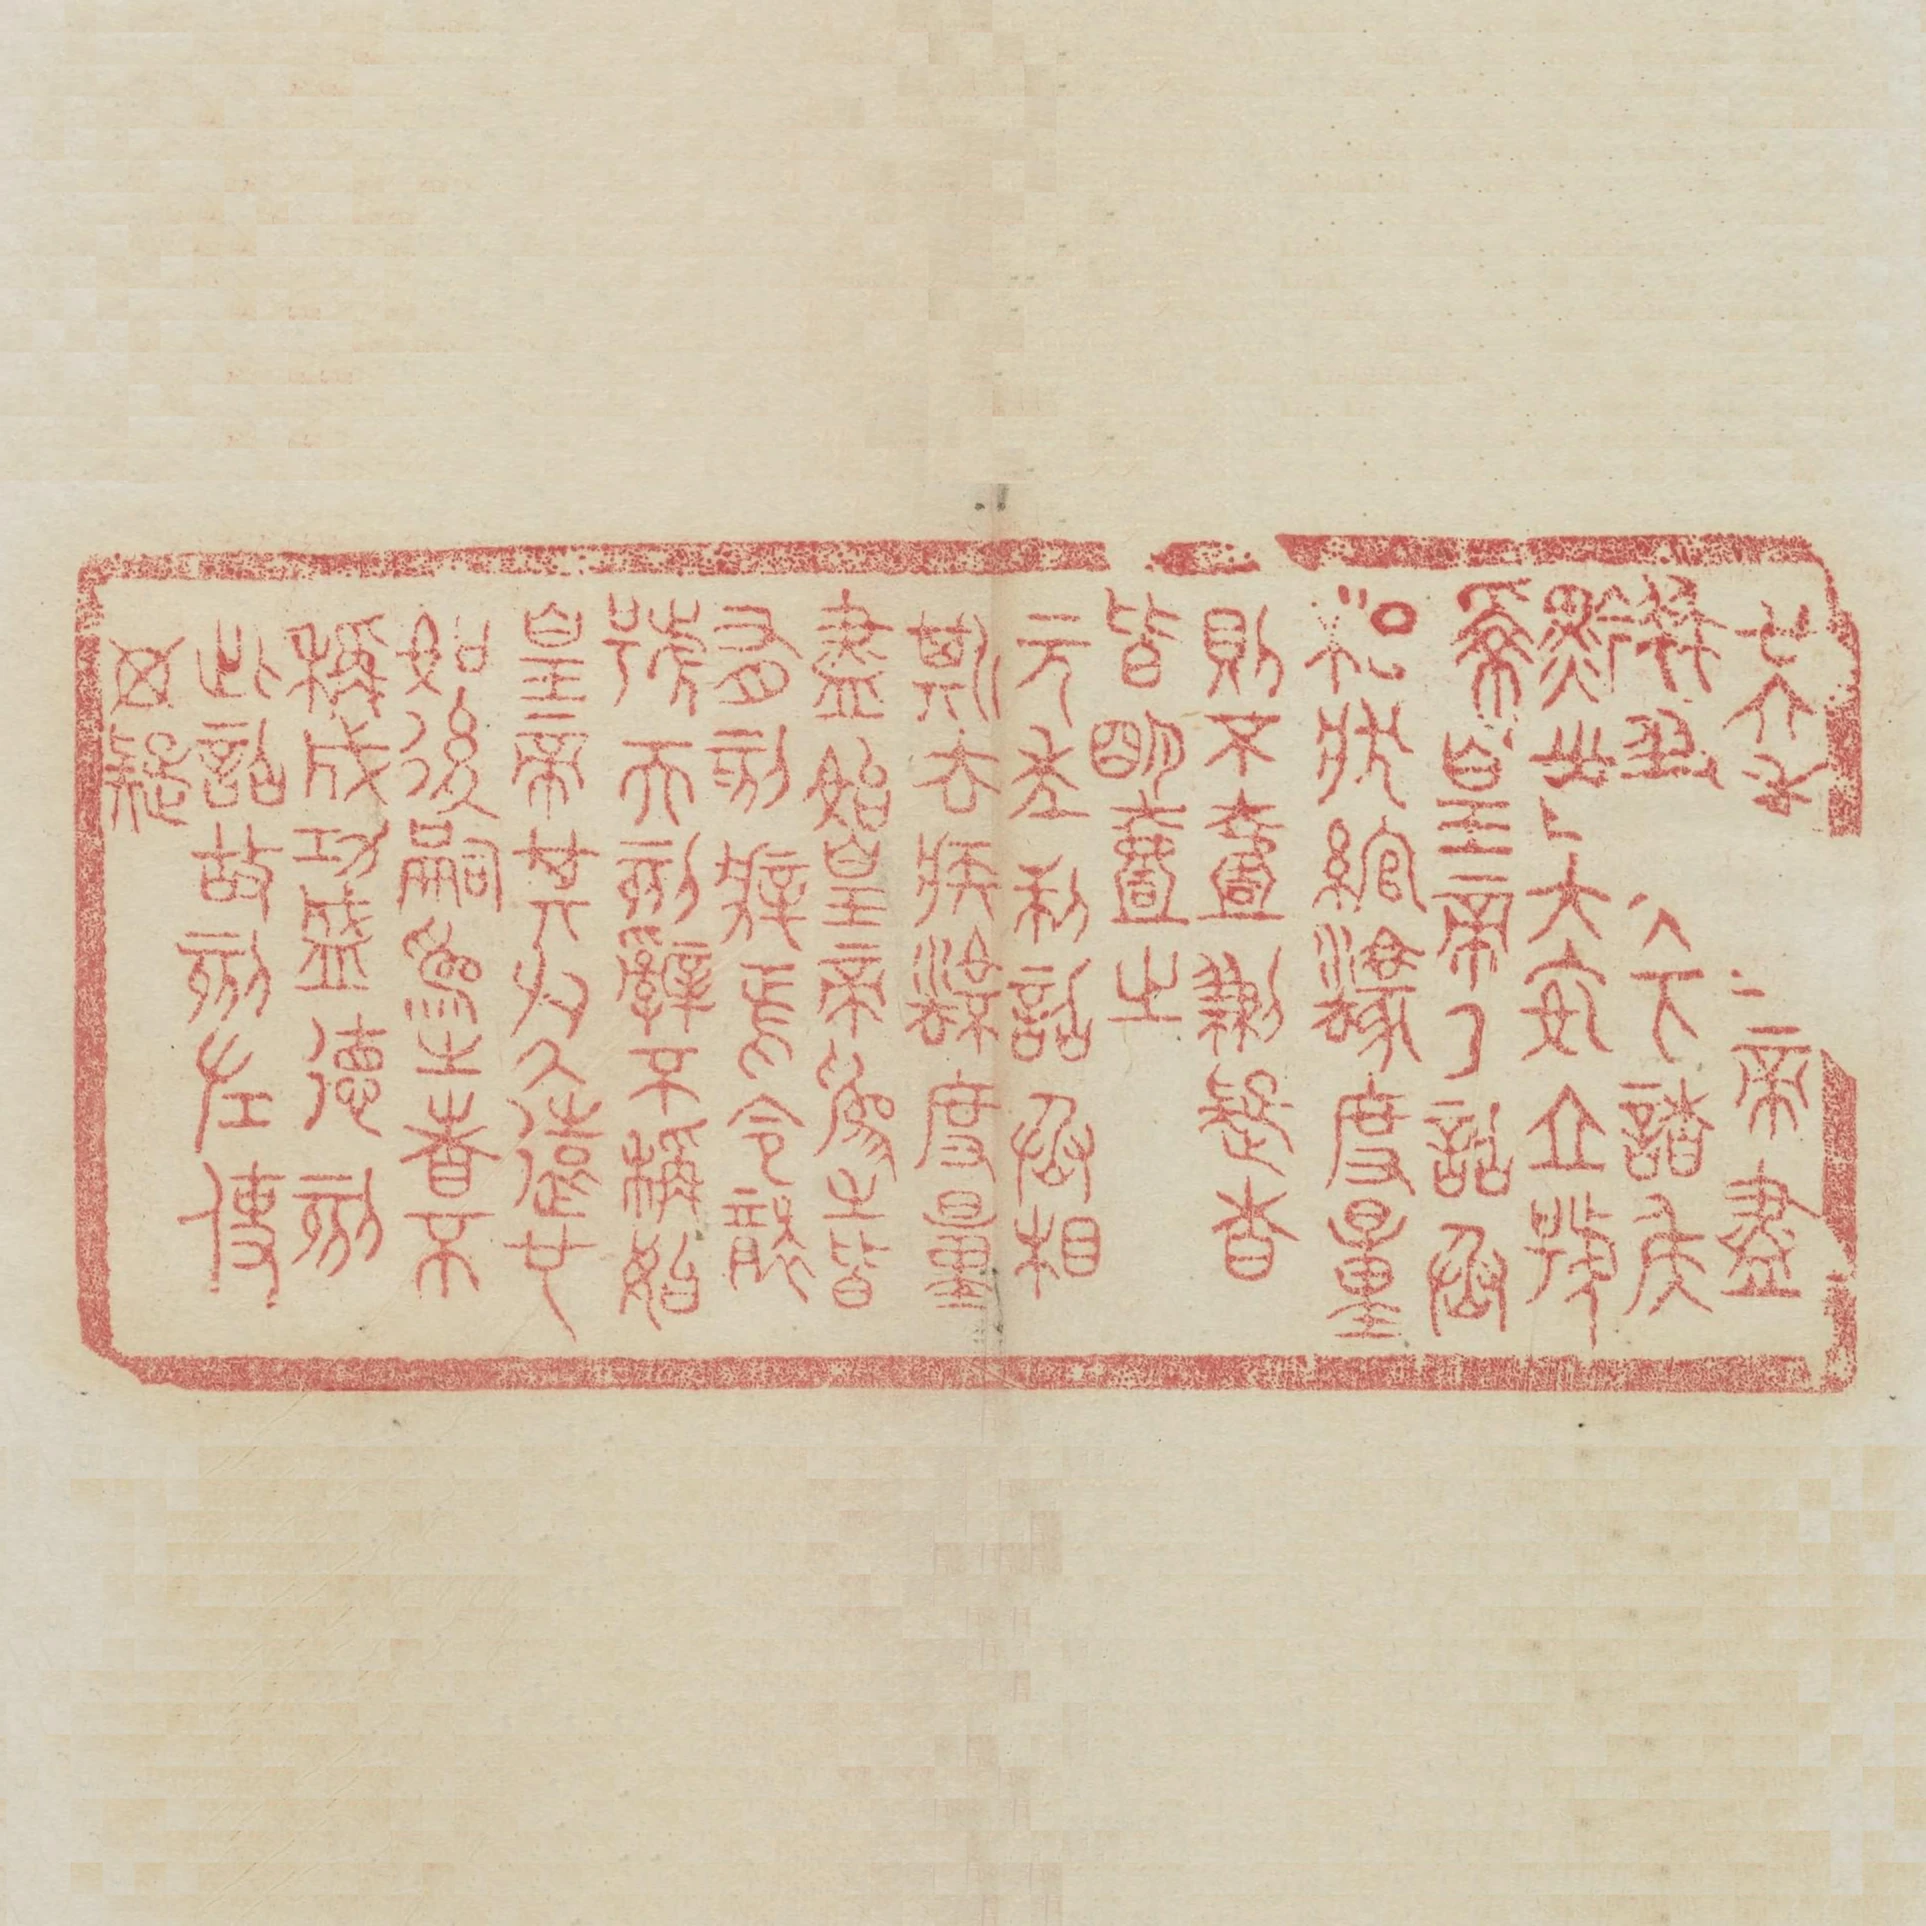 廿六年帝盡
并兼天下諸侯
黔首大安立號
為皇帝乃詔丞
相狀綰灋度量
則不壹歉疑者
皆明壹之
元年制詔丞相
斯去疾灋度量
盡始皇帝為之皆
有刻辭焉今襲
號而刻辭不稱始
皇帝其於久遠也
如後嗣為之者不
稱成功盛德刻
此詔故刻左使
毋疑